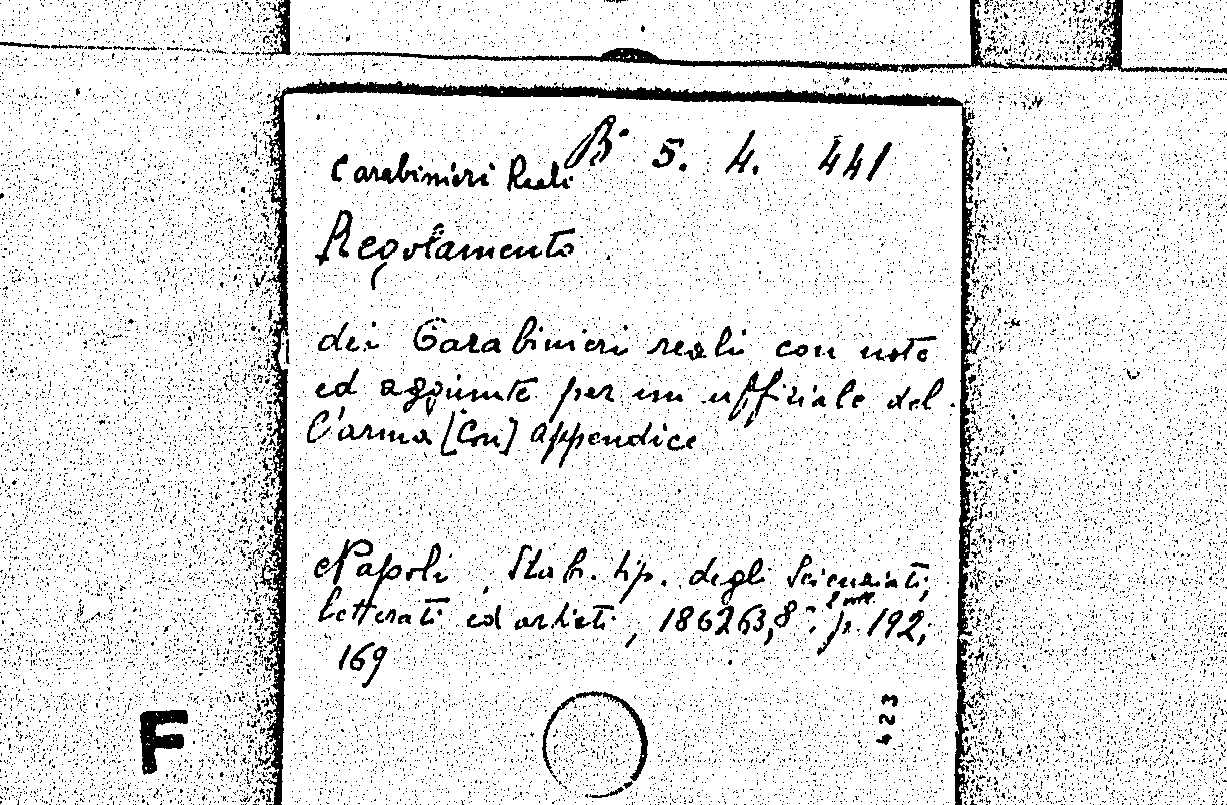 B° 5. 4. 441
Carabinieri Reali
Regolamento
dei Carabinieri reali con note
ed aggiunte per un uffiziale del-
l'arma [Con] appendice
Napoli, Stab. tip. degli Scienziati,
letterati ed artisti, 186263, 8°, 2 voll. p. 192;
169
423
F